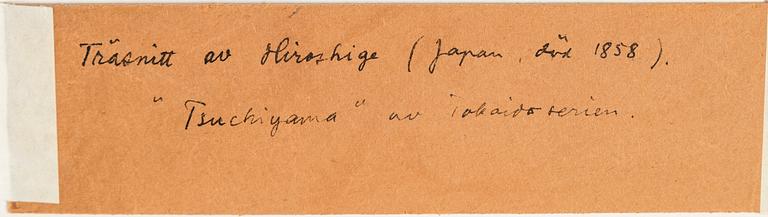 Träsnitt av Hiroshige (Japan, död 1858).
"Tsuchiyama" av Tokaido serien.